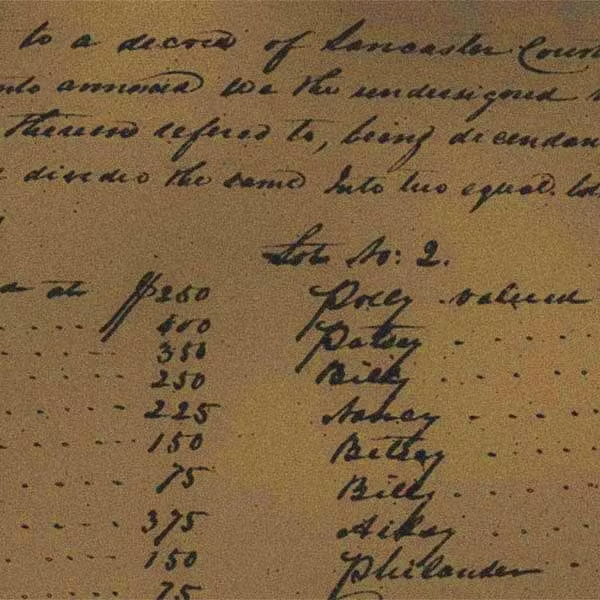 to a decree of Lancaster Court
annexed We the undersigned
therein refered to, being decendan
divided the same Into two equal lot
Lot No: 2.
at $250 Polly valued
400 Patsey
350 Billy
250 Nancy
225 Betsey
150 Billy
75
375
150 Philander
75